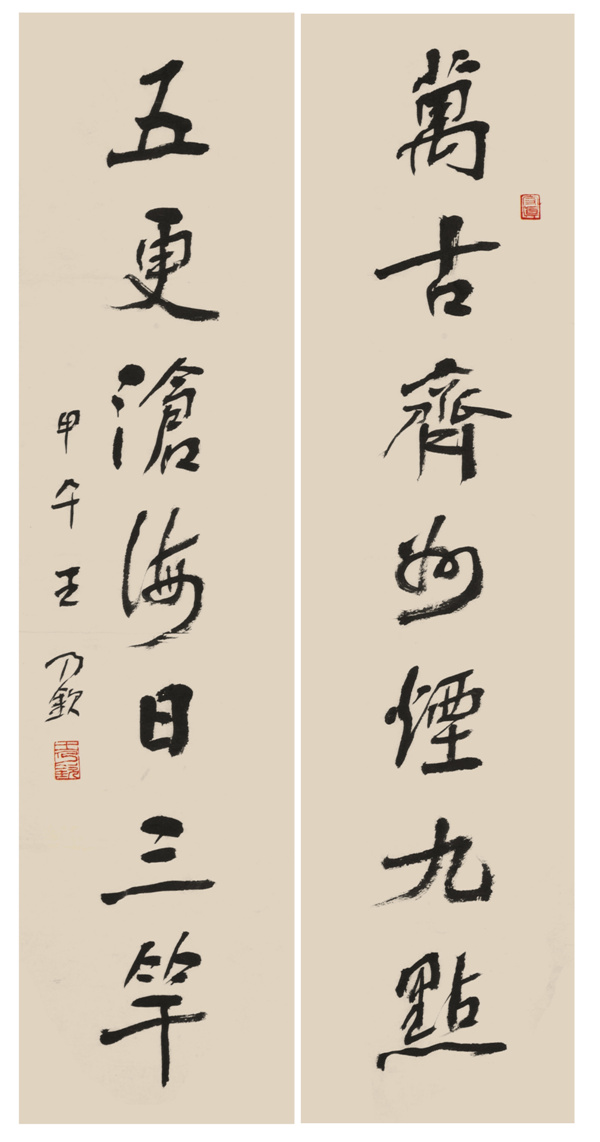 萬古齊州煙九點
五更滄海日三竿
甲午王乃欽
王乃欽